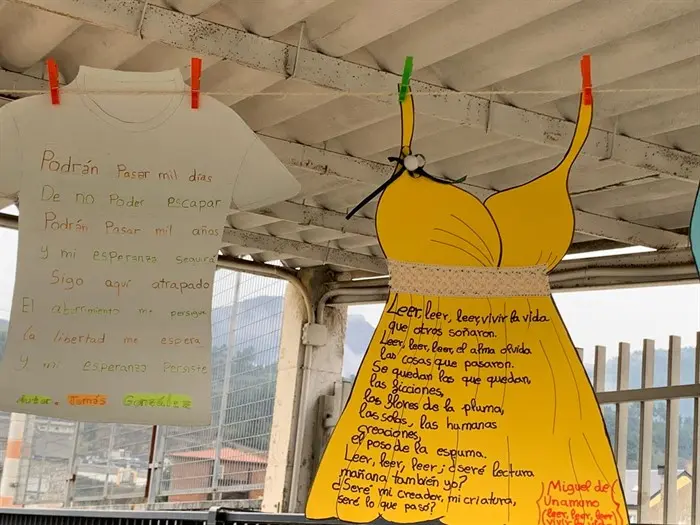 Podrán Pasar mil días
De no Poder escapar
Podrán Pasar mil años
y mi esperanza seguirá
Sigo aquí atrapado
El aburrimiento me persigue
la libertad me espera
y mi esperanza Persiste
Autor. Tomás González
Leer, leer, leer, vivir la vida
que otros soñaron.
Leer, leer, leer, el alma olvida
las cosas que pasaron.
Se quedan las que quedan,
las ficciones,
las flores de la pluma,
las solas, las humanas
creaciones,
el poso de la espuma.
Leer, leer, leer; ¿seré lectura
mañana también yo?
¿Seré mi creador, mi criatura,
seré lo que pasó?
Miguel de
Unamuno
(leer, leer, leer
vivir